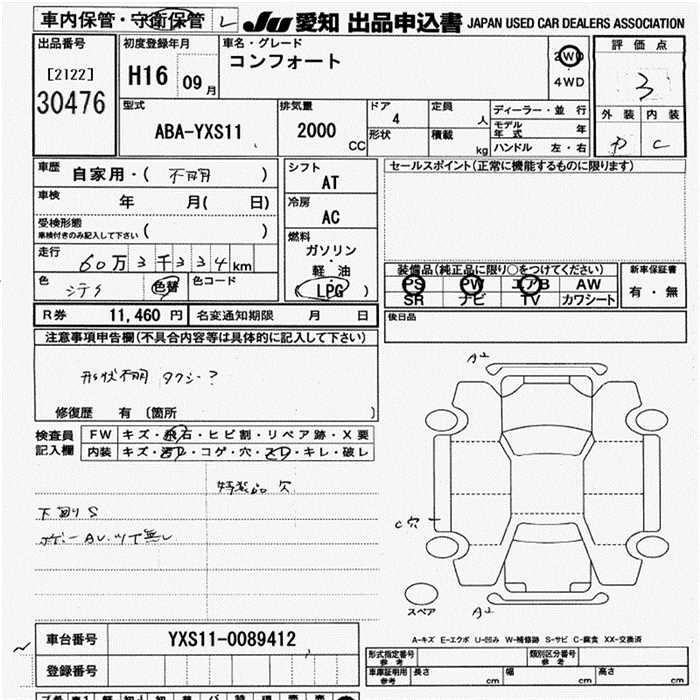 車内保管・守衛保管 JU 愛知 出品申込書 JAPAN USED CAR DEALERS ASSOCIATION
出品番号
[2122]
30476
初度登録年月
H16 09月
車名・グレード
コンフォート
2WD
4WD
評価点
3
外装 内装
D C
型式
ABA-YXS11
排気量
2000 CC
ドア
4
形状
定員
人
積載
kg
ディーラー・並行
モデル年式 年
ハンドル 左・右
車歴
自家用・( 不明 )
車検
年 月( 日)
受検形態
車検付きのみ記入して下さい ( )
走行
60万3千334km
色
シテメ
色替
色コード
シフト
AT
冷房
AC
燃料
ガソリン・
軽油
(LPG)
セールスポイント(正常に機能するものに限ります)
装備品(純正品に限り○をつけてください)
PS PW エアB AW
SR ナビ TV カワシート
新車保証書
有・無
R券 11,460 円 名変通知期限 月 日
後日品
注意事項申告欄(不具合内容等は具体的に記入して下さい)
形状不明 タクシー?
修復歴 有 〔箇所 〕
検査員
記入欄
FW キズ・飛石・ヒビ割・リペア跡・X要
内装 キズ・汚レ・コゲ・穴・スレ・キレ・破レ
特装品穴
下廻りS
ボデーAU.ツヤ無し
A2
C穴
スペア
A2
A-キズ E-エクボ U-凹み W-補修跡 S-サビ C-腐食 XX-交換済
車台番号 YXS11-0089412
登録番号
形式指定番号
参考
類別区分番号
参考
車庫証明用
参考
長さ cm 幅 cm 高さ cm